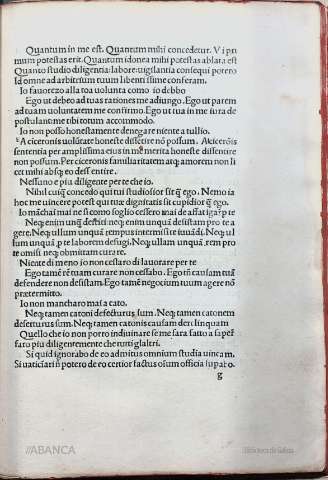 Quantum in me est. Quantum mihi concedetur. Vt pri
mum potestas erit. Quantum idonea mihi potestas ablata est
Quanto studio diligentia: labore: uigilantia consequi potero
Id omne ad arbitrium tuum libentissime conferam.
Io fauorezo alla toa volunta como io debbo
Ego ut debeo ad tuas rationes me adiungo. Ego ut parem
ad tuam uoluntatem me confirmo. Ego ut tua in me iura de
postulant: me tibi totum accommodo.
Io non posso honestamente denegare niente a tullio.
A ciceronis volūtate honeste dissētire nō possum. A ciceroīs
sententia per amplissima eius in me merita honeste dissentire
non possum. Per ciceronis familiaritatem atq; amorem non li
cet mihi absq; eo dessentire.
Nessuno e piu diligente per te che io.
Nihil cuiq̃ concedo qui tui studiosior sit q̃ ego. Nemo ia
hoc me uincere potest qui tuæ dignitatis sit cupidior q̃ ego.
Io māchai mai ne si como soglio cessero mai de affatigar
Neq; enim unq̃ destiti: neq; enim unquā desistam pro te a
gere. Neq; ullum unquā tempus intermisi te iuuādi. Neq; ul
lum unquā p te laborem defugi. Neq; ullam unquā rem pro
te omisi: neq; obmittam curare.
Niente di meno io non cessaro di lauorare per te
Ego tamē rē tuam curare non cessabo. Ego tñ causam tuā
defendere non desistam. Ego tamē negocium tuum agere nō
prætermitto.
Io non mancharo mai a cato.
Neq; tamen catoni defecturus sum. Neq; tamen catonem
deserturus sum. Neq; tamen catonis causam derelinquam
Quello che io non poro induinare se me sara fatto a saper
faro piu diligentemente che tutti gl altri.
Si quid ignorabo de eo admitus omnium studia uincam.
Si uaticiari ñ potero de eo certior factus oīum officia supabo.
g
ABANCA
Biblioteca de Galicia